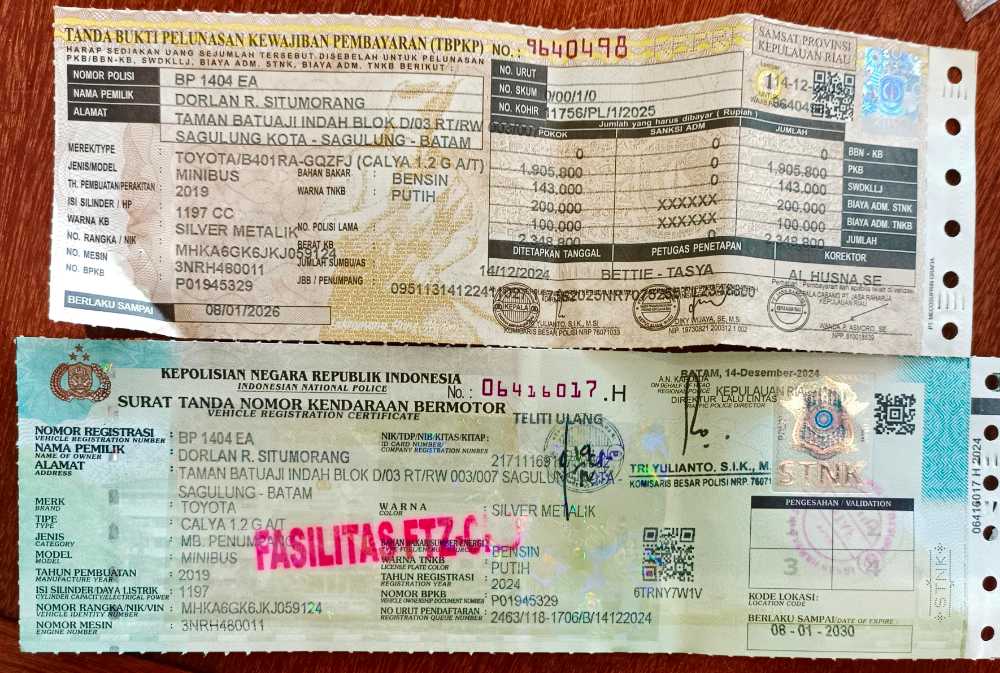 TANDA BUKTI PELUNASAN KEWAJIBAN PEMBAYARAN (TBPKP) NO.: 9640498
HARAP SEDIAKAN UANG SEJUMLAH TERSEBUT DISEBELAH UNTUK PELUNASAN
PKB/BBN-KB, SWDKLLJ, BIAYA ADM. STNK, BIAYA ADM. TNKB BERIKUT :
SAMSAT PROVINSI
KEPULAUAN RIAU
NOMOR POLISI : BP 1404 EA
NAMA PEMILIK : DORLAN R. SITUMORANG
ALAMAT : TAMAN BATUAJI INDAH BLOK D/03 RT/RW
SAGULUNG KOTA - SAGULUNG - BATAM
MEREK/TYPE : TOYOTA/B401RA-GQZFJ (CALYA 1.2 G A/T)
JENIS/MODEL : MINIBUS
BAHAN BAKAR : BENSIN
TH. PEMBUATAN/PERAKITAN : 2019
WARNA TNKB : PUTIH
ISI SILINDER / HP : 1197 CC
WARNA KB : SILVER METALIK
NO. POLISI LAMA :
NO. RANGKA / NIK : MHKA6GK6JKJ059124
BERAT KB
NO. MESIN : 3NRH480011
JUMLAH SUMBU/AS :
NO. BPKB : P01945329
JBB / PENUMPANG :
BERLAKU SAMPAI : 08/01/2026
NO. URUT
NO. SKUM 0/00/1/0
NO. KOHIR 11756/PL/1/2025
Jumlah yang harus dibayar ( Rupiah )
POKOK SANKSI ADM JUMLAH
0 0 0 BBN - KB
1.905.800 0 1.905.800 PKB
143.000 0 143.000 SWDKLLJ
200.000 XXXXXX 200.000 BIAYA ADM. STNK
100.000 XXXXXX 100.000 BIAYA ADM. TNKB
2.348.800 0 2.348.800 JUMLAH
DITETAPKAN TANGGAL PETUGAS PENETAPAN KOREKTOR
14/12/2024 BETTIE - TASYA AL HUSNA SE
TRI YULIANTO, S.I.K., M.Si
KOMISARIS BESAR POLISI NRP 76071033
KEPOLISIAN NEGARA REPUBLIK INDONESIA
INDONESIAN NATIONAL POLICE
No. : 06416017.H
SURAT TANDA NOMOR KENDARAAN BERMOTOR
VEHICLE REGISTRATION CERTIFICATE
TELITI ULANG
BATAM, 14-Desember-2024
A.N. KAPOLDA
ON BEHALF OF HEAD
REGIONAL POLICE
KEPULAUAN
DIREKTUR LALU LINTAS
TRAFFIC POLICE DIRECTOR
TRI YULIANTO, S.I.K., M.
KOMISARIS BESAR POLISI NRP. 7607
STNK
NOMOR REGISTRASI : BP 1404 EA
VEHICLE REGISTRATION NUMBER
NIK/TDP/NIB/KITAS/KITAP :
ID CARD NUMBER/
COMPANY REGISTRATION NUMBER
NAMA PEMILIK : DORLAN R. SITUMORANG
NAME OF OWNER
ALAMAT : TAMAN BATUAJI INDAH BLOK D/03 RT/RW 003/007 SAGULUNG KOTA -
ADDRESS
SAGULUNG - BATAM
MERK : TOYOTA
BRAND
WARNA : SILVER METALIK
COLOR
TIPE : CALYA 1.2 G A/T
TYPE
FASILITAS FTZ
JENIS : MB. PENUMPANG
CATEGORY
BAHAN BAKAR/SUMBER ENERGI : BENSIN
MODEL : MINIBUS
MODEL
WARNA TNKB : PUTIH
LICENSE PLATE COLOR
TAHUN PEMBUATAN : 2019
MANUFACTURE YEAR
TAHUN REGISTRASI : 2024
REGISTRATION YEAR
ISI SILINDER/DAYA LISTRIK : 1197
CYLINDER CAPACITY/ELECTRICAL POWER
NOMOR BPKB : P01945329
VEHICLE OWNERSHIP DOCUMENT NUMBER
NOMOR RANGKA/NIK/VIN : MHKA6GK6JKJ059124
VEHICLE IDENTITY NUMBER
NO URUT PENDAFTARAN : 2463/118-1706/B/14122024
REGISTRATION QUEUE NUMBER
NOMOR MESIN : 3NRH480011
ENGINE NUMBER
6TRNY7W1V
PENGESAHAN / VALIDATION
3 4
KODE LOKASI:
LOCATION CODE
BERLAKU SAMPAI/DATE OF EXPIRE :
08 - 01 - 2030
06416017 H 2024
STNK